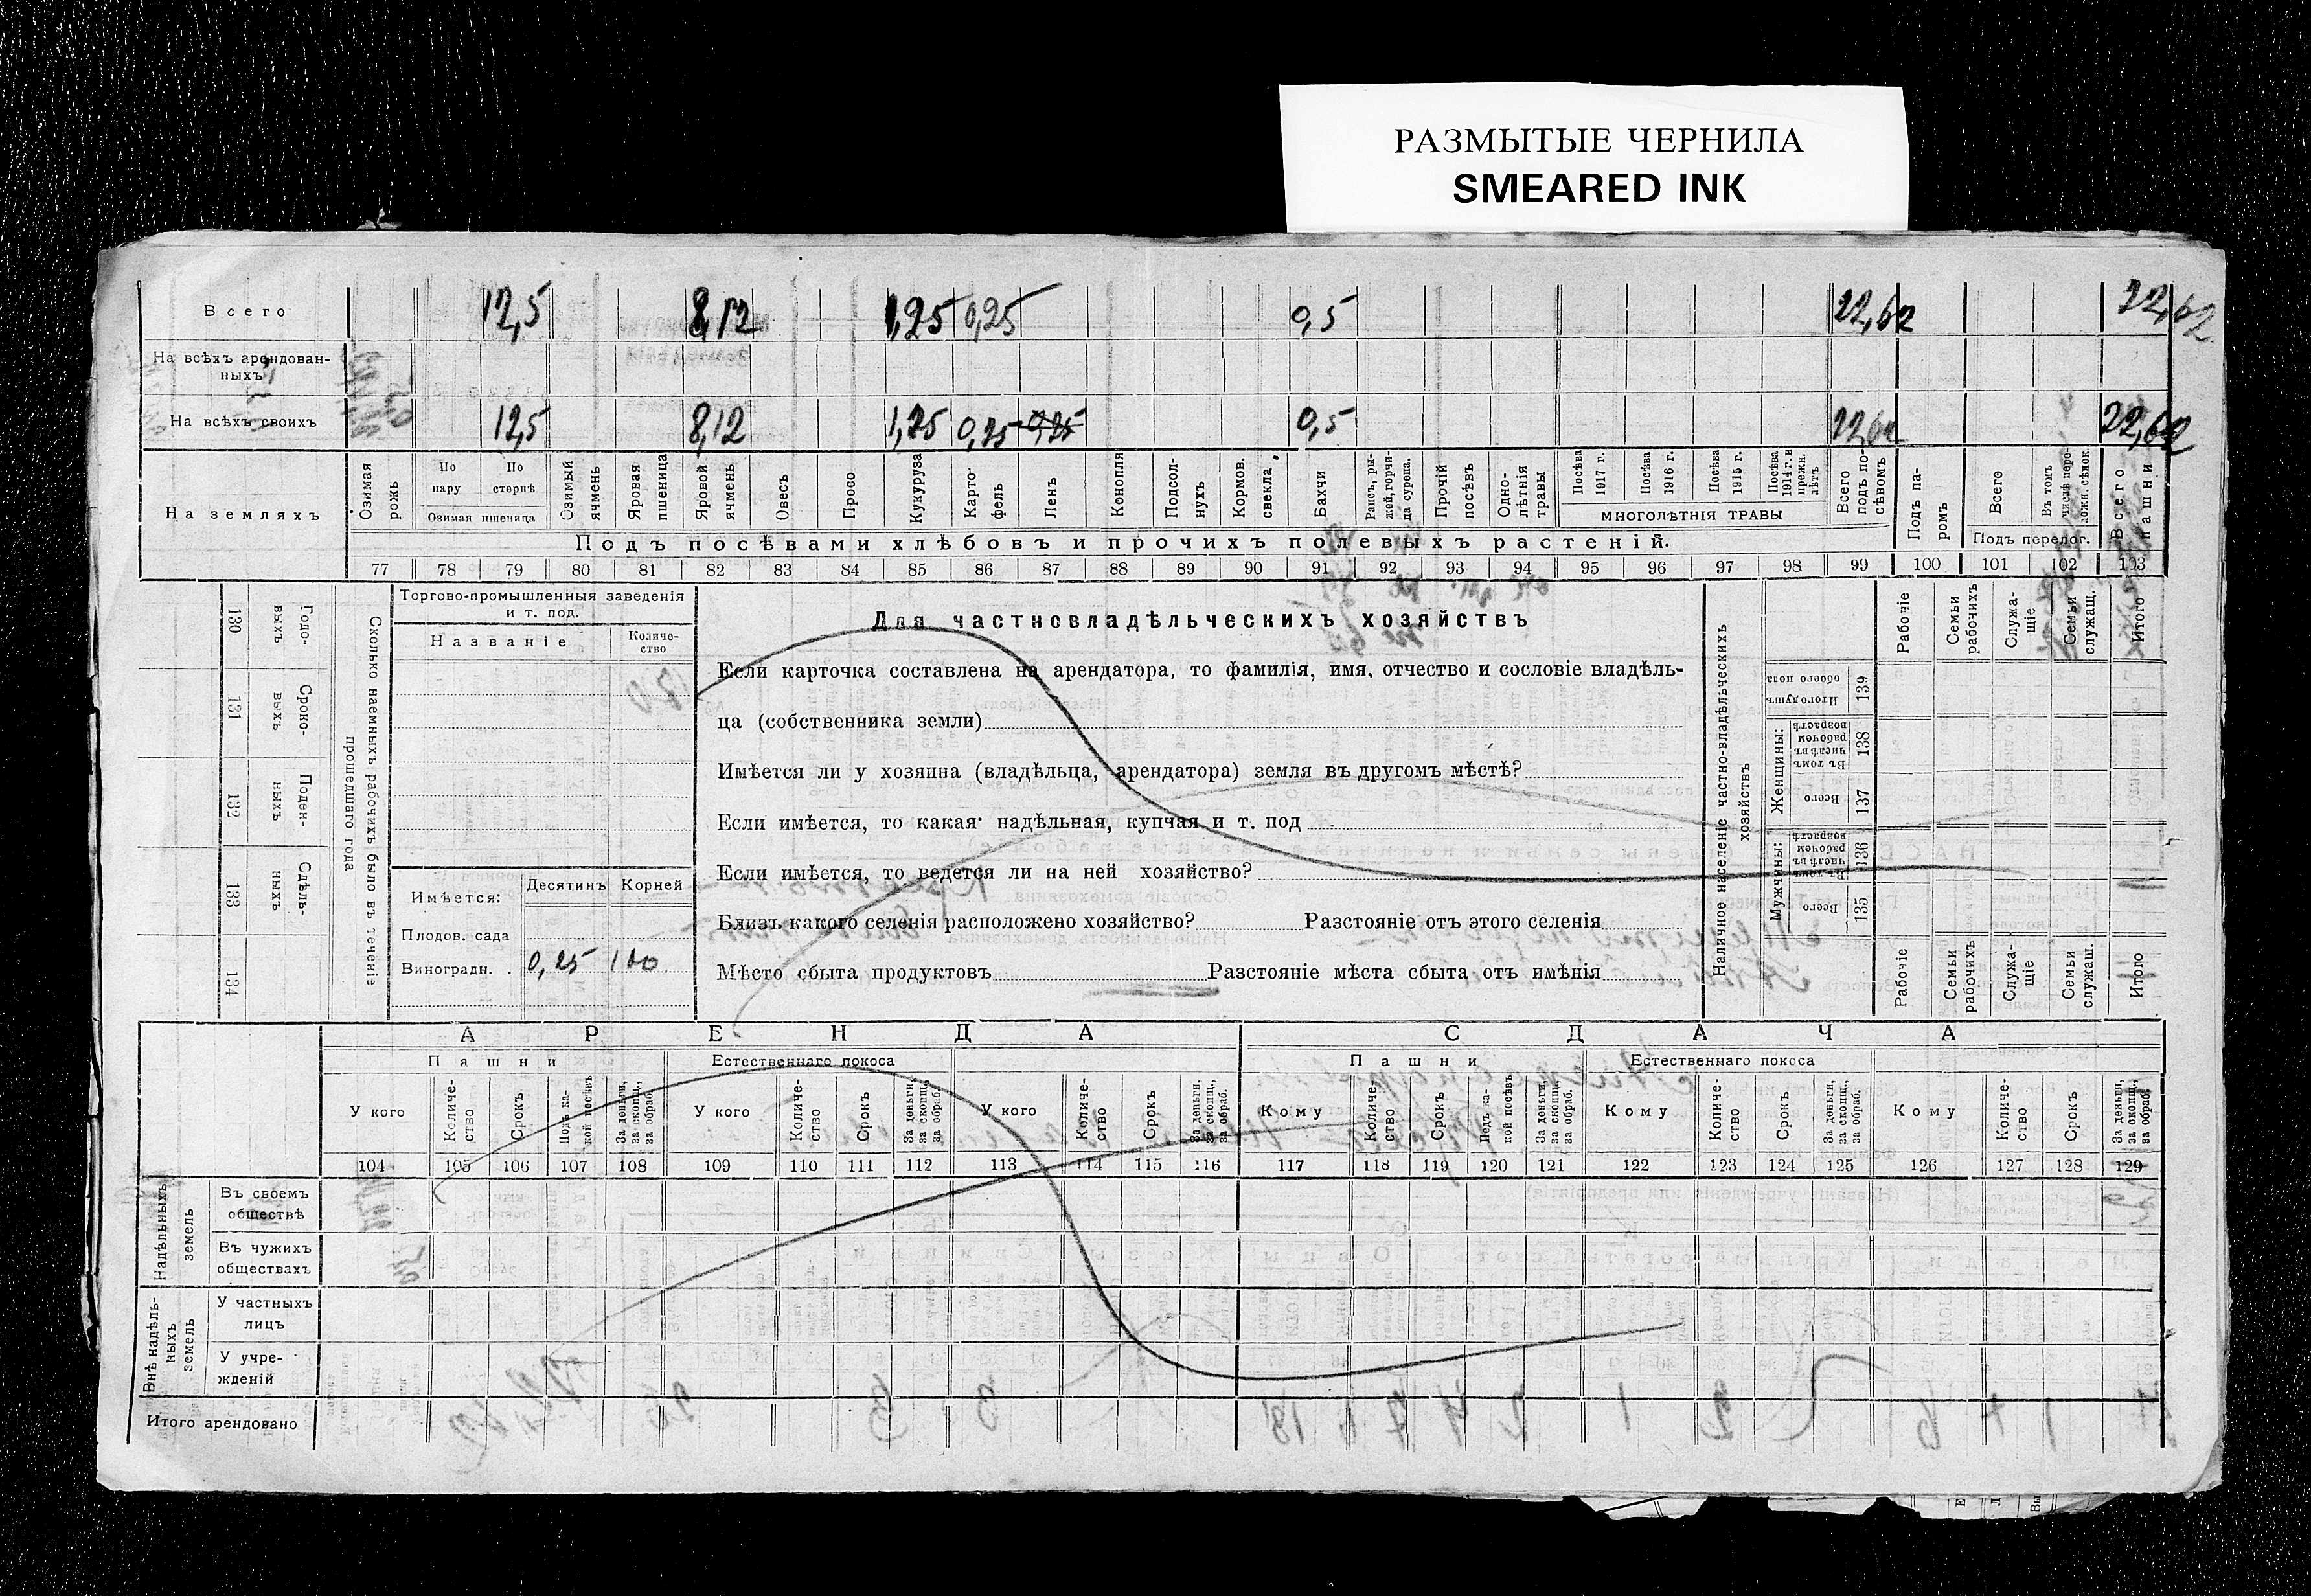 РАЗМЫТЫЕ ЧЕРНИЛА
SMEARED INK
Всего 12,5 8,12 1,25 0,25 0,5 22,62 22,62
На всѣхъ арендован-
ныхъ
На всѣхъ своихъ 12,5 8,12 1,25 0,25 0,25 0,5 22,62 22,62
На земляхъ
Озимая рожь
По пару
По стернѣ
Озимая пшеница
Озимый ячмень
Яровая пшеница
Яровой ячмень
Овесъ
Просо
Кукуруза
Карто-
фель
Ленъ
Конопля
Подсол-
нухъ
Кормов. свекла
Бахчи
Рапсъ, ры-
жей, горчи-
ца сурепа.
Прочій посѣвъ
Одно-
лѣтнія травы
Посѣва 1917 г.
Посѣва 1916 г.
Посѣва 1915 г.
Посѣва 1914 г. и прежн. лѣтъ
МНОГОЛѢТНІЯ ТРАВЫ
Всего подъ по-
сѣвомъ
Подъ па-
ромъ
Всего
Въ томъ числѣ пере-
ложн. сѣнок.
Подъ перелог.
Всего пашни
Подъ посѣвами хлѣбовъ и прочихъ полевыхъ растеній.
77 78 79 80 81 82 83 84 85 86 87 88 89 90 91 92 93 94 95 96 97 98 99 100 101 102 103
130 Годо-
выхъ
131 Сроко-
выхъ
132 Поден-
ныхъ
133 Сдѣль-
ныхъ
134
Сколько наемныхъ рабочихъ было въ теченіе
прошедшаго года
Торгово-промышленныя заведенія
и т. под.
Названіе
Количе-
ство
Имѣется: Десятинъ Корней
Плодов. сада
Виноградн. . 0,25 100
Для частновладѣльческихъ хозяйствъ
Если карточка составлена на арендатора, то фамилія, имя, отчество и сословіе владѣль-
ца (собственника земли)
Имѣется ли у хозяина (владѣльца, арендатора) земля въ другомъ мѣстѣ?
Если имѣется, то какая: надѣльная, купчая и т. под
Если имѣется, то ведется ли на ней хозяйство?
Близъ какого селенія расположено хозяйство? Разстояніе отъ этого селенія
Мѣсто сбыта продуктовъ Разстояніе мѣста сбыта отъ имѣнія
Наличное населеніе частно-владѣльческихъ
хозяйствъ
Рабочіе
Семьи рабочихъ
Служа-
щіе
Семьи служащ.
Итого
Итого душъ обоего пола 139
Женщины:
Въ томъ числѣ въ рабочемъ возрастѣ 138
Всего 137
Мужчины:
Въ томъ числѣ въ рабочемъ возрастѣ 136
Всего 135
Рабочіе
Семьи рабочихъ
Служа-
щіе
Семьи служащ.
Итого
АРЕНДА СДАЧА
Пашни Естественнаго покоса Пашни Естественнаго покоса
У кого
Количе-
ство
Срокъ
Подъ ка-
кой посѣвъ
За деньги, за скопщ., за обраб.
У кого
Количе-
ство
Срокъ
За деньги, за скопщ., за обраб.
У кого
Количе-
ство
Срокъ
За деньги, за скопщ., за обраб.
Кому
Количе-
ство
Срокъ
Подъ ка-
кой посѣвъ
За деньги, за скопщ., за обраб.
Кому
Количе-
ство
Срокъ
За деньги, за скопщ., за обраб.
Кому
Количе-
ство
Срокъ
За деньги, за скопщ., за обраб.
104 105 106 107 108 109 110 111 112 113 114 115 116 117 118 119 120 121 122 123 124 125 126 127 128 129
Надѣльныхъ земель
Въ своемъ
обществѣ
Въ чужихъ
обществахъ
Внѣ надѣль-
ныхъ земель
У частныхъ
лицъ
У учре-
жденій
Итого арендовано